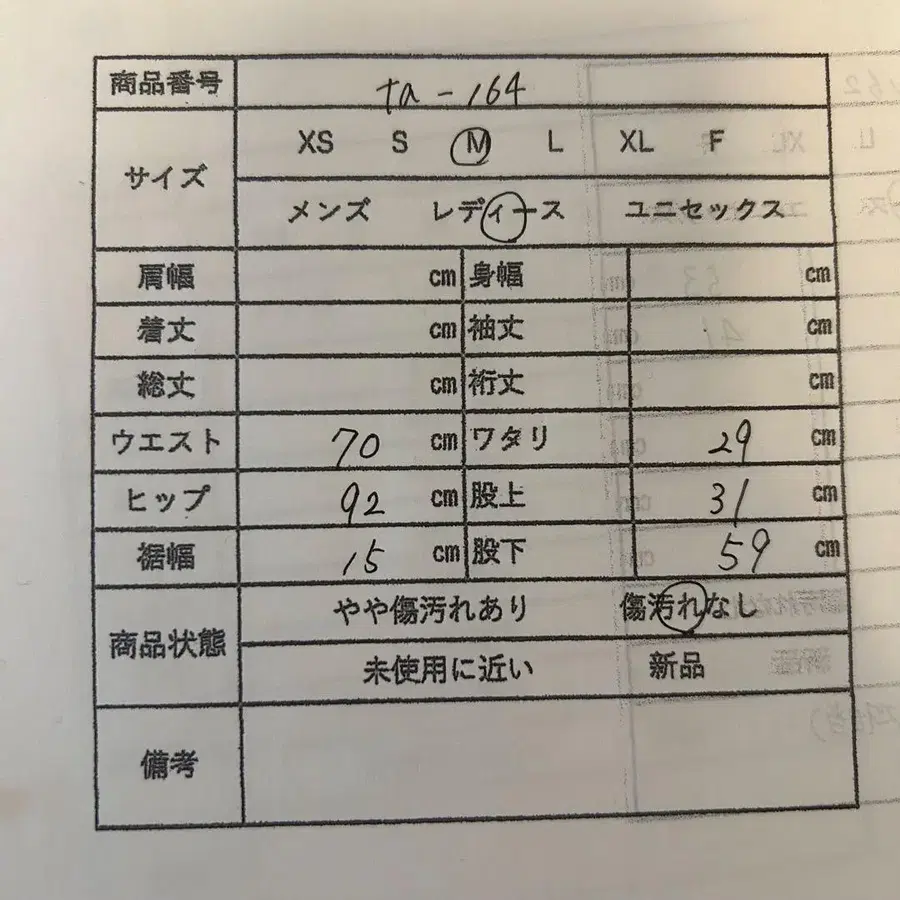 商品番号 ta-164
サイズ XS S M L XL F
メンズ レディース ユニセックス
肩幅 cm 身幅 cm
着丈 cm 袖丈 cm
総丈 cm 裄丈 cm
ウエスト 70 cm ワタリ 29 cm
ヒップ 92 cm 股上 31 cm
裾幅 15 cm 股下 59 cm
商品状態 やや傷汚れあり 傷汚れなし
未使用に近い 新品
備考